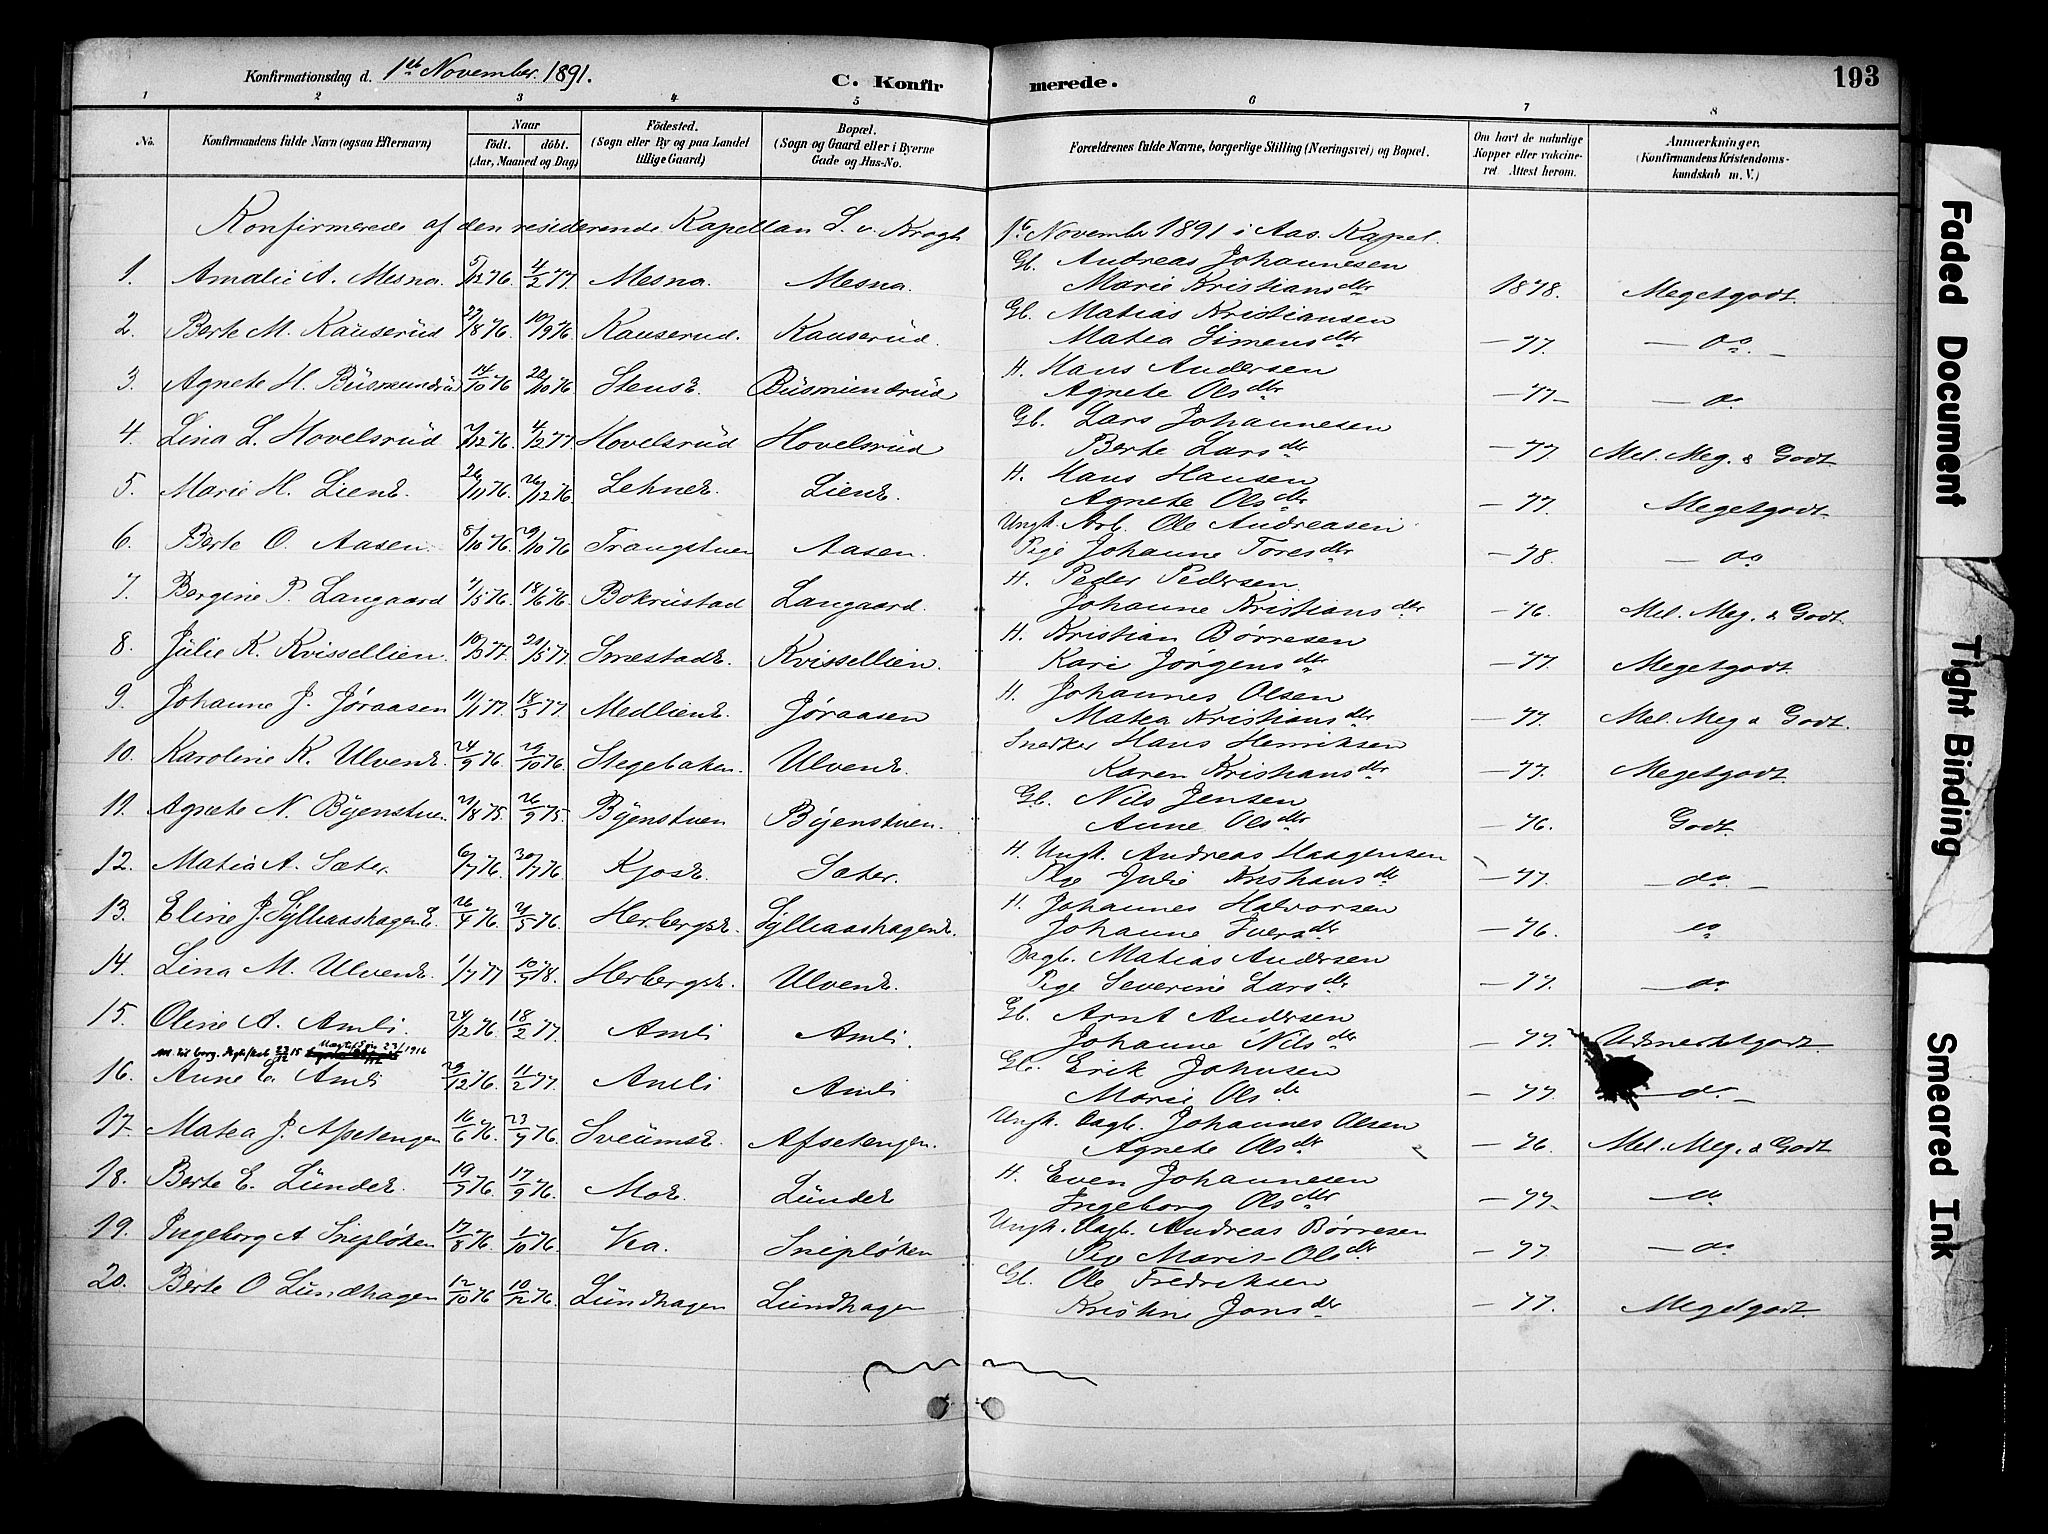 Konfirmationsdag d. 1ste November 1891.
C. Konfir merede.
193
1 2 3 4 5 6 7 8
No. Konfirmandens fulde Navn (ogsaa Efternavn) Naar født. døbt. (Aar, Maaned og Dag) Fødested. (Sogn eller By og paa Landet tillige Gaard) Bopæl. (Sogn og Gaard eller i Byerne Gade og Hus-No. Forældrenes fulde Navne, borgerlige Stilling (Næringsvei) og Bopæl. Om havt de naturlige Kopper eller vaccineret. Attest herom. Anmærkninger. (Konfirmandens Kristendomskundskab m. V.)
Konfirmerede af den residerende Kapellan S. v. Krogh 1ste November 1891 i Aas Kapel.
1. Amalie A. Mesna. 5/12 76. 4/2 77. Mesna. Mesna. Gb. Andreas Johannesen
Marie Kristiansdtr 1878. Megetgodt
2. Berte M. Kauserud 27/8 76 10/9 76 Kauserud. Kauserud. Gb. Matias Kristiansen
Matea Simensdtr — 77. — do. —
3. Agnete H. Busmundrud 14/10 76 22/10 76 Stensk. Busmundrud H. Hans Andersen
Agnete Olsdtr — 77 — — do
4. Lina L. Hovelsrud 7/12 76. 4/2 77. Hovelsrud Hovelsrud Gb. Lars Johannesen
Berte Larsdtr — 77 Mel. Meg. & Godt
5. Marie H. Liene. 20/11 76. 26/12 76. Lehnee. Liene. H. Hans Hansen
Agnete Olsdtr — 77. Megetgodt
6. Berte O. Aasen. 8/10 76. 29/10 76 Trangstuen Aasen. Ungk. Arb. Ole Andreasen
Pige Johanne Toresdtr — 78. — do
7. Bergine P. Langaard 7/5 76. 18/6 76 Bokrustad Langaard. H. Peder Pedersen
Johanne Kristiansdtr — 76. Mel. Meg. & Godt.
8. Julie K. Kvissellien. 10/3 77. 21/5 77. Smestade. Kvissellien. H. Kristian Børresen
Kari Jørgensdtr — 77. Megetgodt
9. Johanne J. Jøraasen 11/1 77. 18/3 77. Medliene. Jøraasen H. Johannes Olsen
Matea Kristiansdtr — 77. Mel. Meg & Godt.
10. Karoline K. Ulvene. 24/9 76. 29/10 76. Stegebaken. Ulvene. Snedker Hans Henriksen
Karen Kristiansdtr — 77. Megetgodt
11. Agnete N. Byenstuen 21/8 75. 26/9 75. Byenstuen Byenstuen. Gb. Nils Jensen
Anne Olsdtr — 76. Godt.
12. Matea A. Sæter. 6/7 76. 30/7 76. Kjose. Sæter. H. Ungk. Andreas Haagensen
Pige Julie Kristiansdtr — 77. — do. —
13. Eline J. Sylliaashagene. 26/4 76. 21/5 76. Herbergse. Sylliaashagene. H. Johannes Halvorsen
Johanne Iversdtr — 76. do
14. Lina M. Ulvene. 1/7 77 10/9 78. Herbergse. Ulvene. Dagb. Matias Andersen
Pige Severine Larsdtr — 77. — do
15. Oline A. Amli. 24/12 76. 18/2 77. Amli Amli. Gb. Arnt Andersen
Johanne Nilsdtr — 77. Udmerketgodt.
16. Anne E. Amli 29/12 76. 11/2 77. Amli Amli Gb. Erik Johnsen
Marie Olsdtr — 77. — do. —
17. Matea J. Afsetengen 16/6 76. 23/7 76. Sveumse. Afsetengen. Ungk. Dagb. Johannes Olsen
Agnete Olsdtr — 76. Mel. Meg. & Godt
18. Berte E. Lunde. 19/7 76. 17/9 76. Moe. Lunde H. Even Johannesen
Ingeborg Olsdtr — 77. — do
19. Ingeborg A Snipløken 17/8 76. 1/10 76. Snipløken Ungk. Dagb. Andreas Børresen
Pige Marit Olsdtr — 77. — do
20. Berte O Lundhagen 12/10 76 10/12 76. Lundhagen Lundhagen Gb. Ole Fredriksen
Kristine Jonsdtr — 77. Megetgodt.
Faded Document
Tight Binding
Smeared Ink